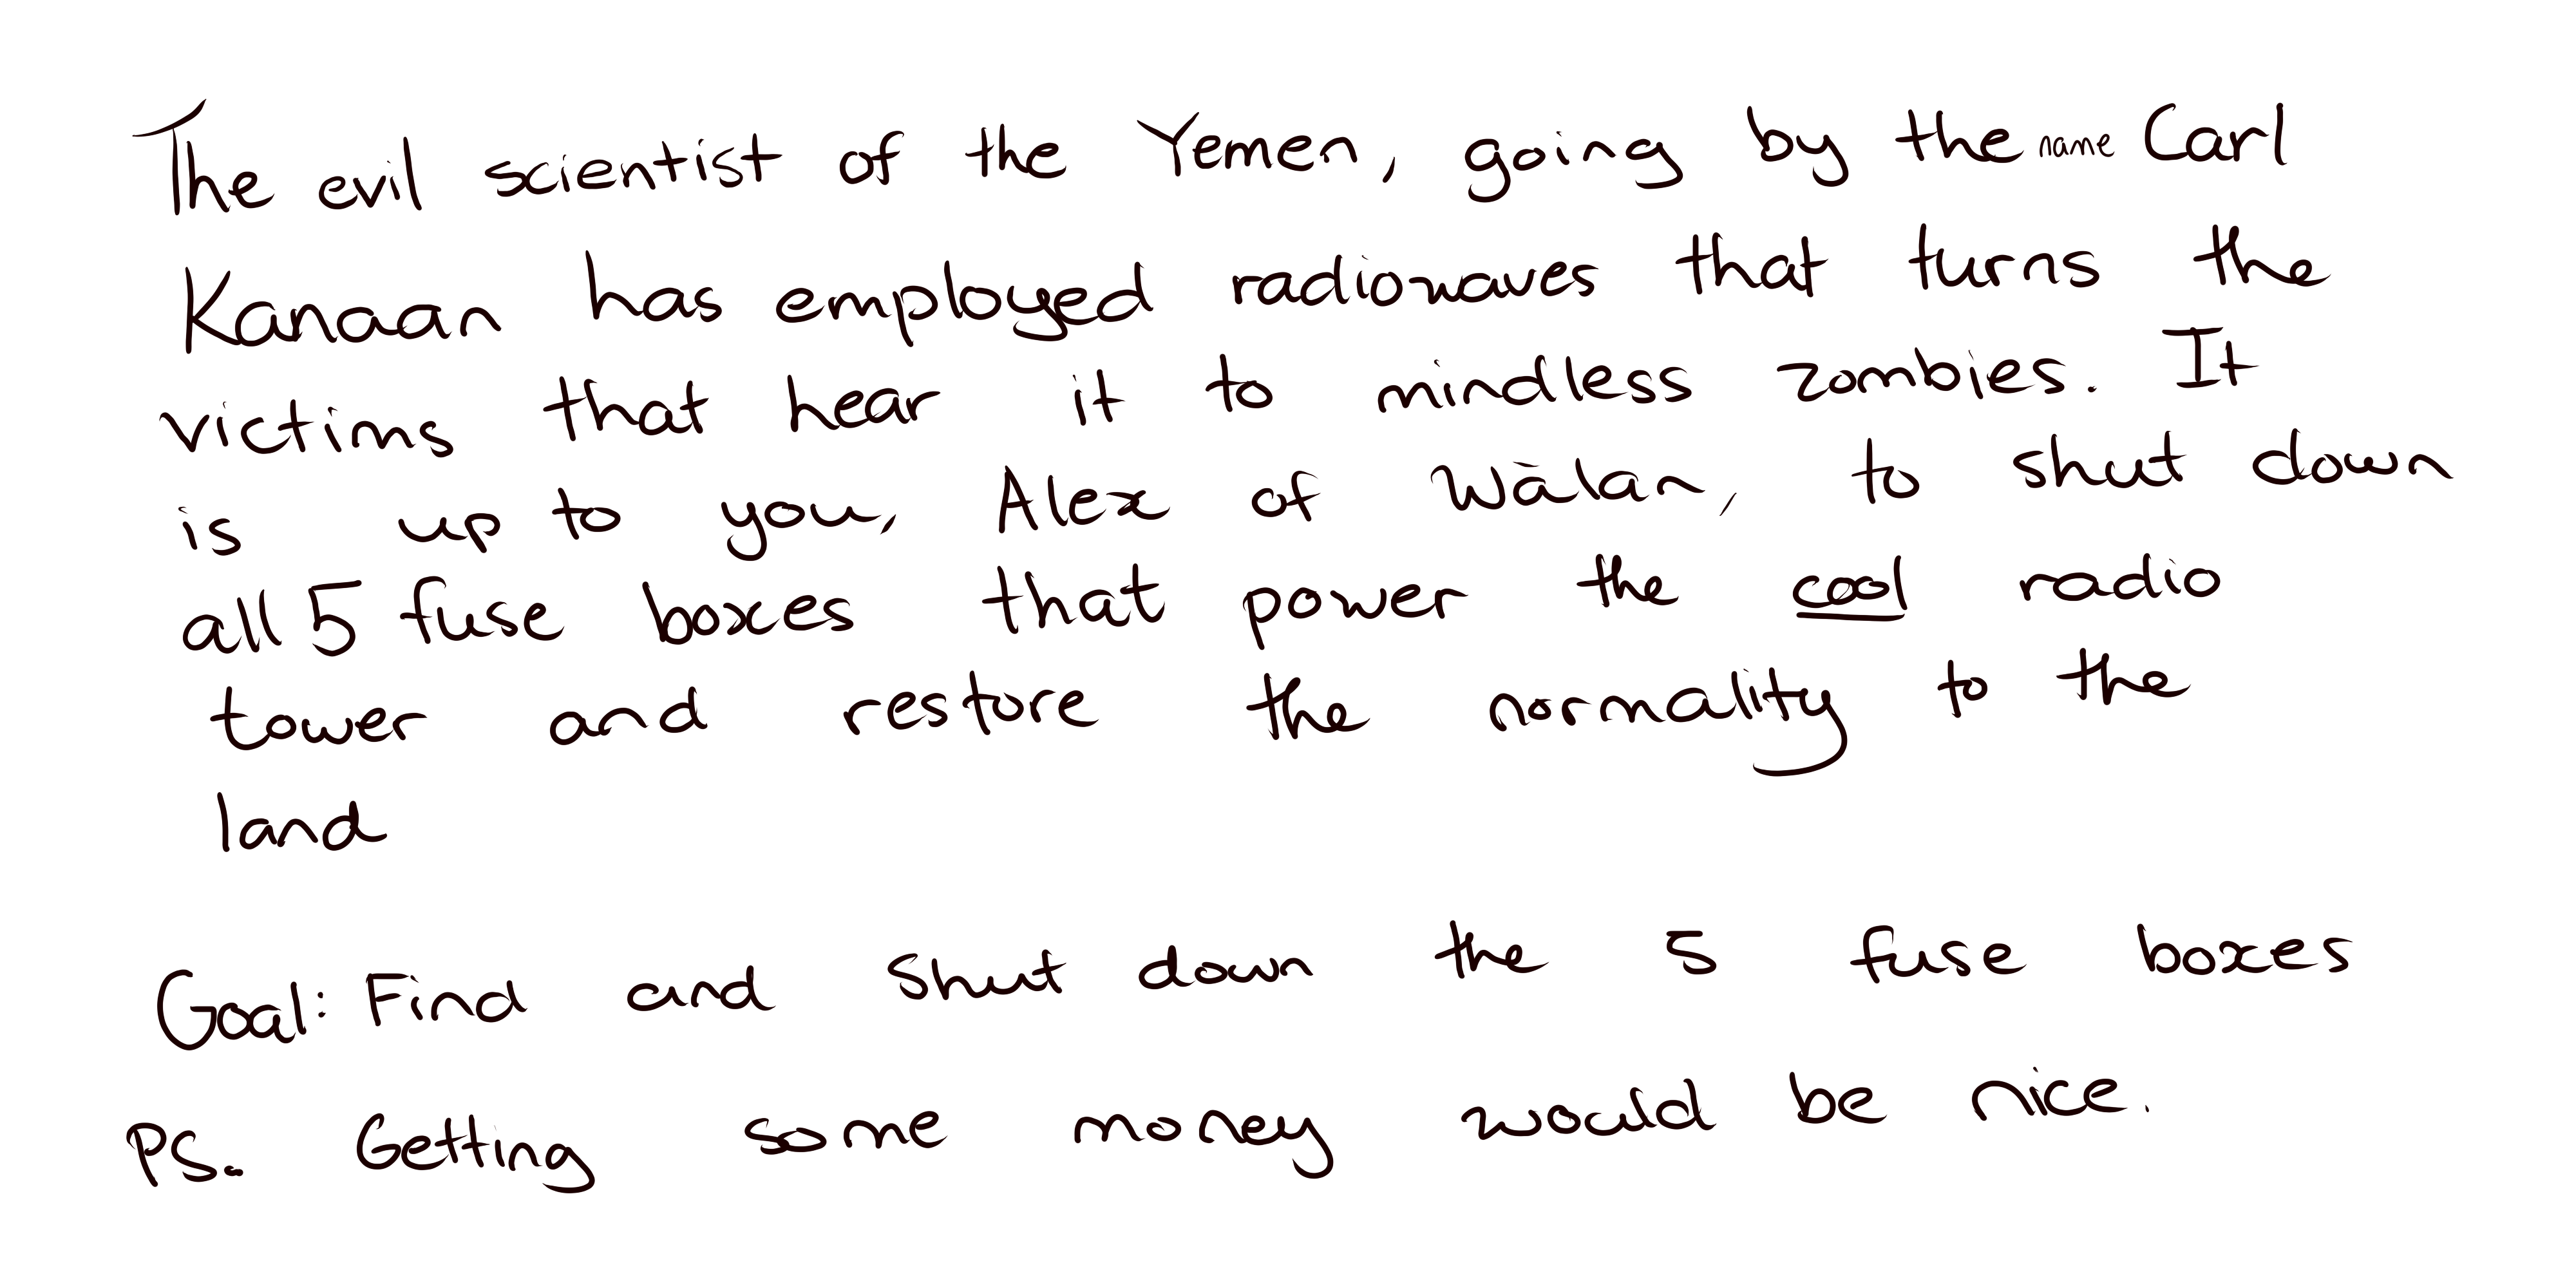 The evil scientist of the Yemen, going by the name Carl
Kanaan has employed radiowaves that turns the
victims that hear it to mindless zombies. It
is up to you, Alex of Wàlan, to shut down
all 5 fuse boxes that power the cool radio
tower and restore the normality to the
land
Goal: Find and Shut down the 5 fuse boxes
PS. Getting some money would be nice.